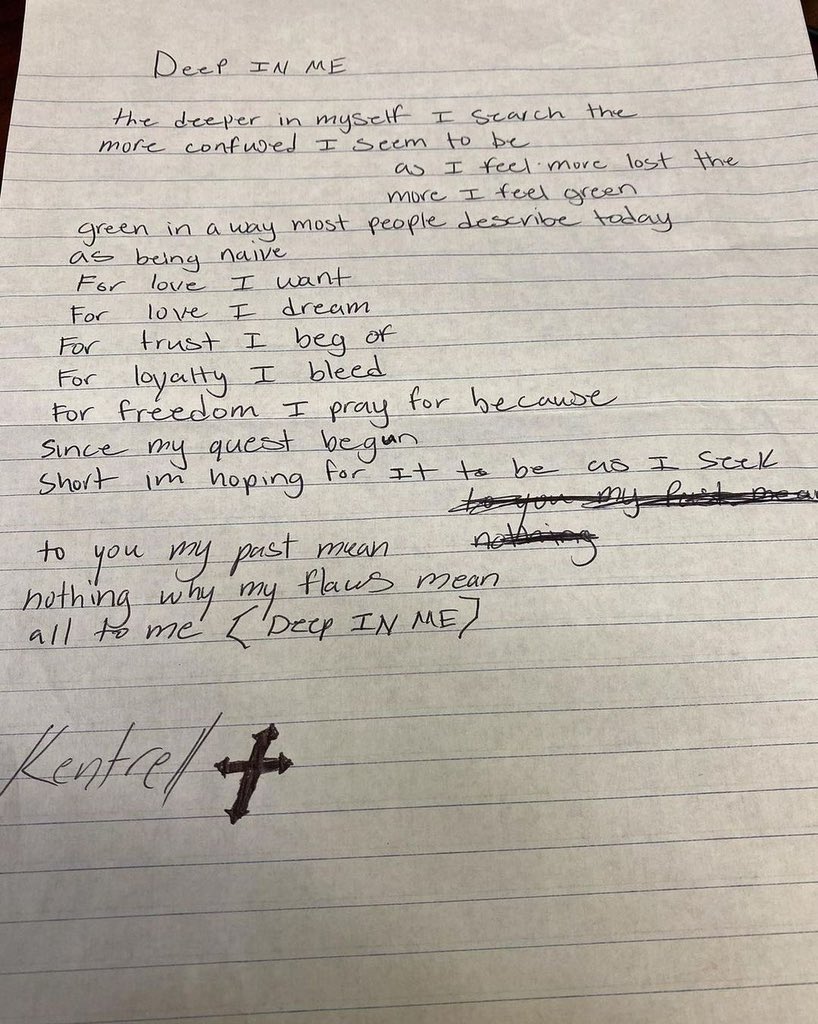 Deep IN ME
the deeper in myself I search the
more confused I seem to be
as I feel more lost the
more I feel green
green in a way most people describe today
as being naive
For love I want
For love I dream
For trust I beg of
For loyalty I bleed
For freedom I pray for because
since my quest begun
short im hoping for It to be as I seek
to you my past mean
nothing
to you my past mean
nothing why my flaws mean
all to me [Deep IN ME]
Kentrell